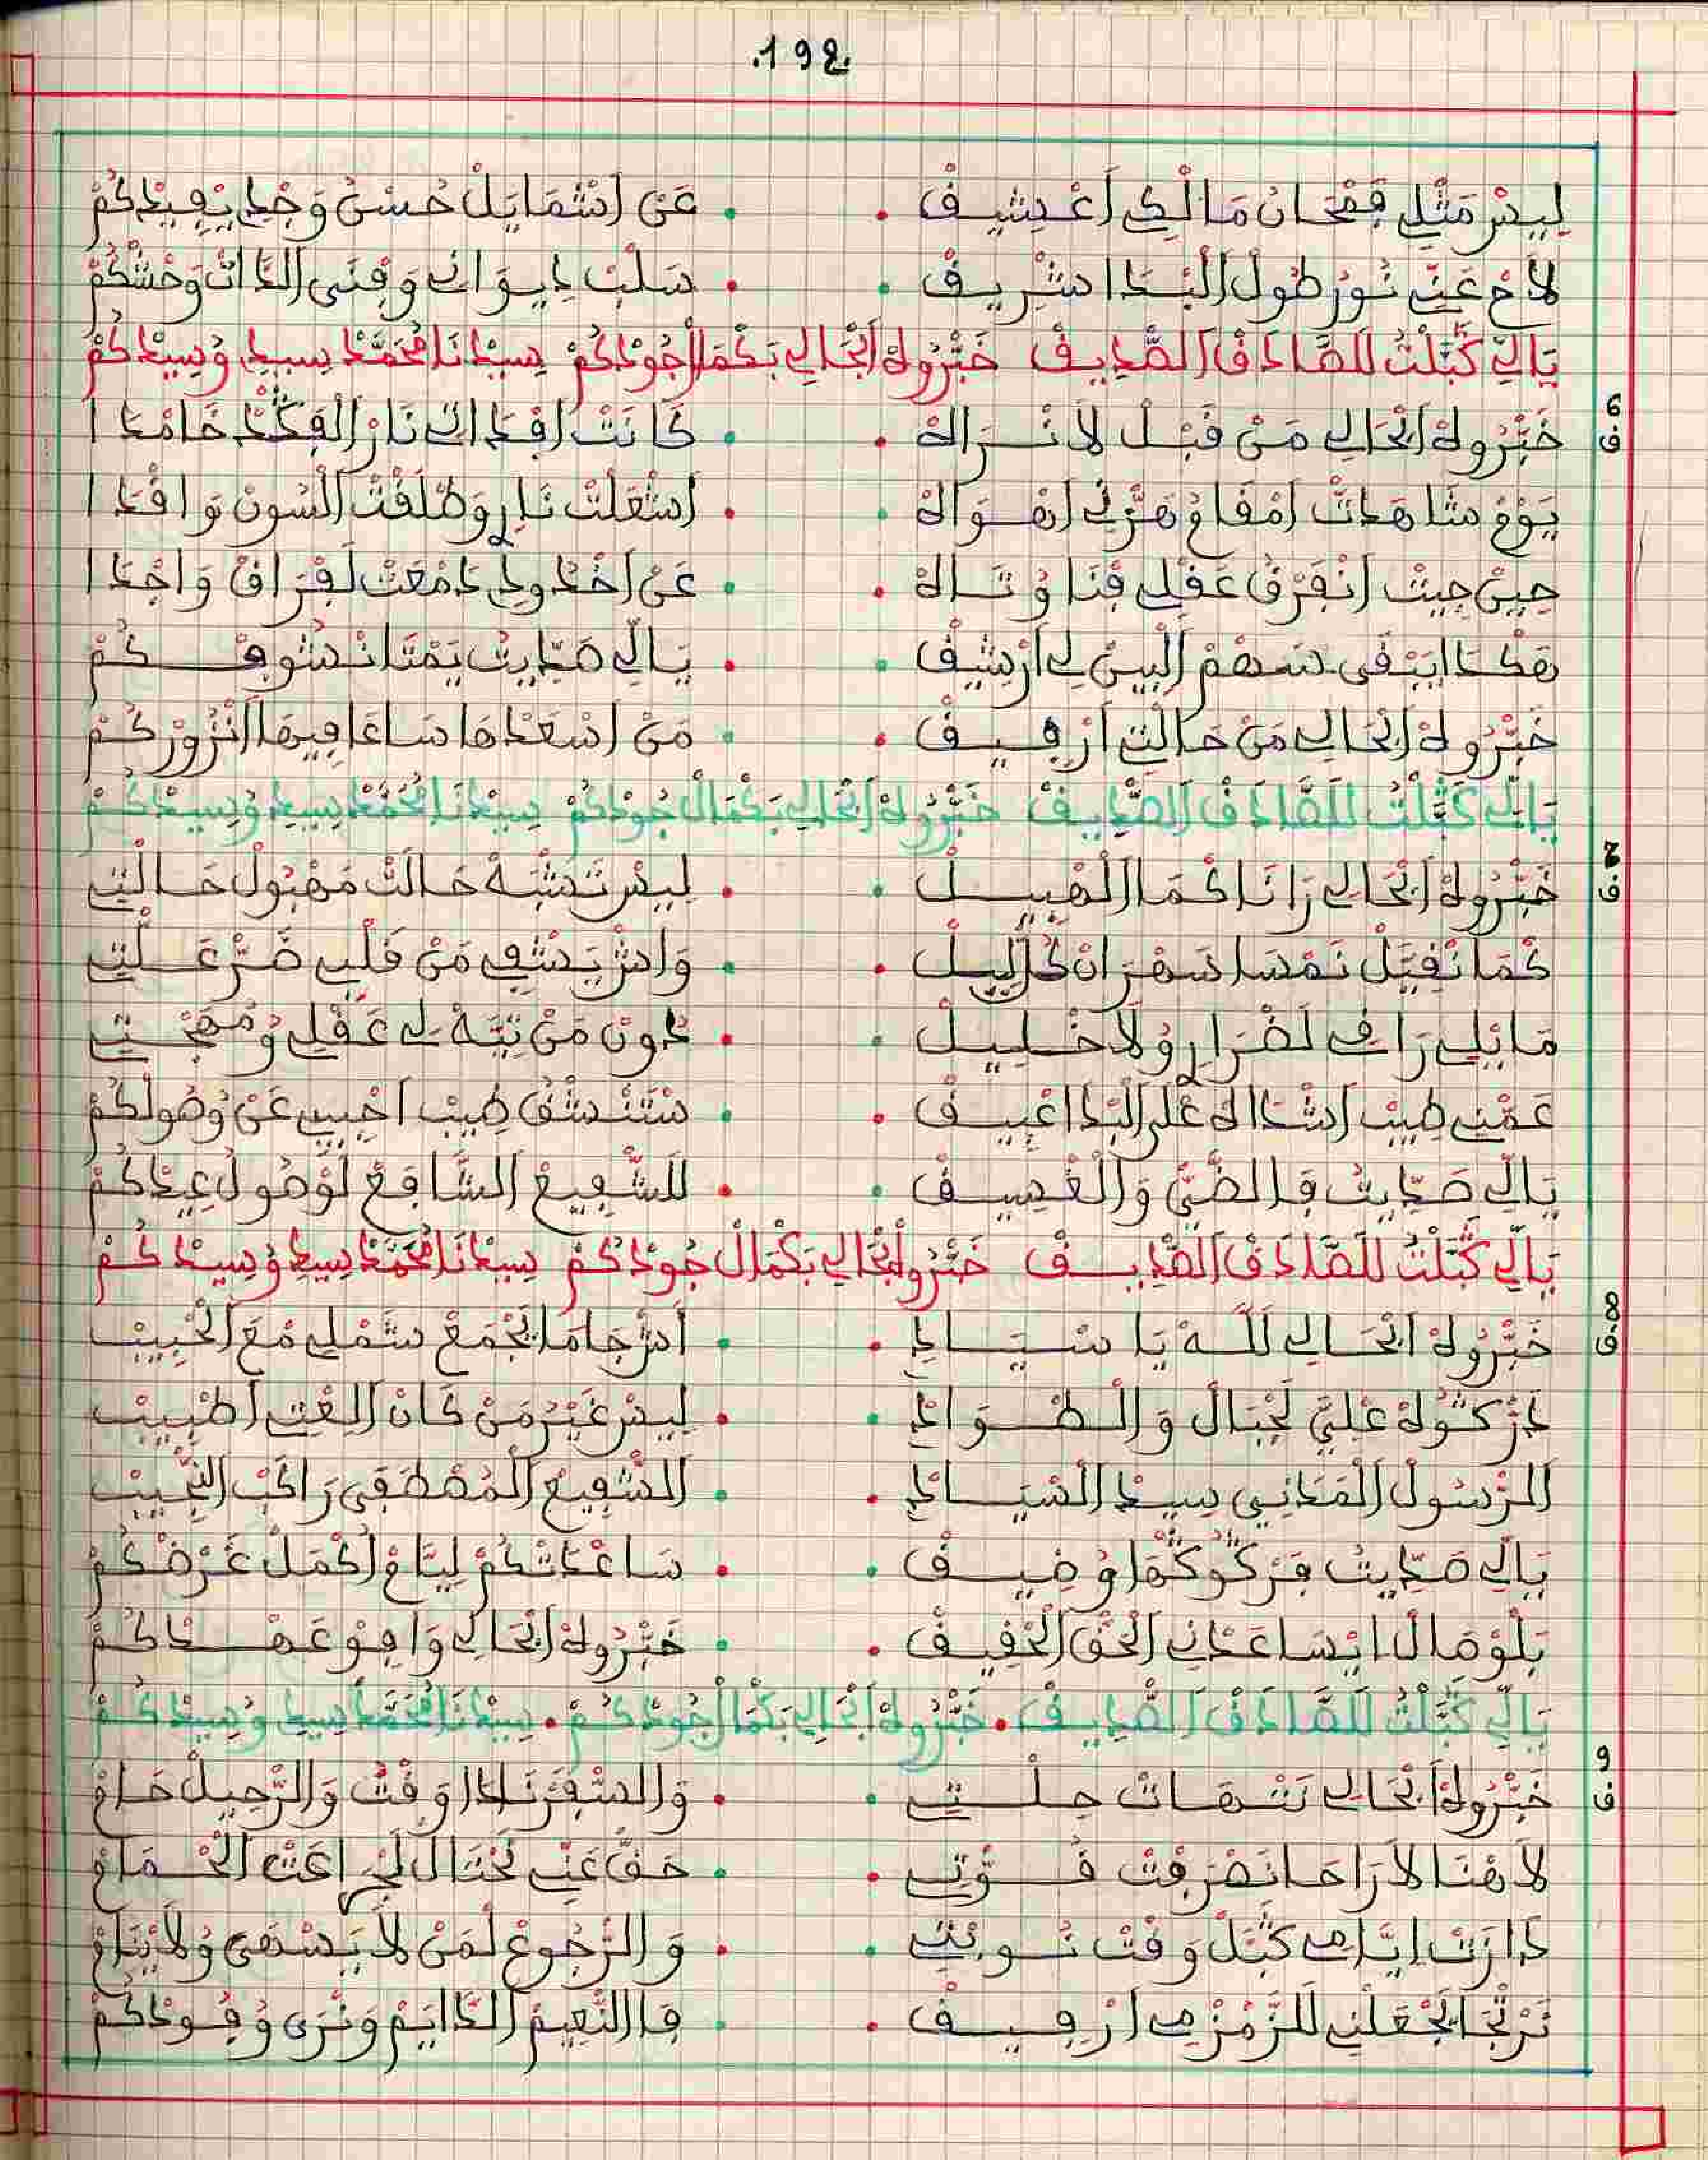 .198.
لِيسْ مَثْلِي فَمْحَانْ مَالْكِي اعْشِيفْ . عَنْ اشْمَايَلْ حُسْنْ وَجْدِ يْفِيدْكُمْ
لاَحْ عَنِّي نُورْ طُولْ الْبْدَا اشْرِيفْ . سَلْبْ دِيوَانِي وَفْنَى الذَّاتْ وَحْشْكُمْ
يَالِّي كَبَّلْتُ لَلصَّادَقْ الصّْدِيفْ خَبّْرُولَهْ ابْحَالِي بَكْمَالْ جُودْكُمْ سِيدْنَا مُحَمَّدْ سِيدِي وُسِيدْكُمْ
6 ق
خَبّْرُولَهْ ابْحَالِي مَنْ قَبْلْ لاَ نْرَاهْ . كَانَتْ افْدَاتِي نَارْ الْفَكْدْ خَامْدَا
يَوْمْ شَاهَدْتْ امْقَامُ هَزّْنِي اهْوَاهْ . اشْعَلْتْ نَارِي وَطْلَقْتْ السُّونْ وَافْدَا
حِينْ جِيتْ انْفَرْقُ عَقْلِي فْنَا وُتَاهْ . عَنْ اخْدُودِي دَمْعَتْ لَفْرَاقْ وَاجْدَا
هَكْدَا يَبْقَى سَهْمْ الْبِينْ لِي ارْشِيفْ . يَالِّي صَدِّيتُ يَمْتَا نْشُوفْكُمْ
خَبّْرُولَهْ ابْحَالِي مَنْ حَالْتِي ارْفِيفْ . مَنْ اسْعَدْهَا سَاعَا فِيهَا انْزُورْكُمْ
يَالِّي كَبَّلْتُ لَلصَّادَقْ الصّْدِيفْ خَبّْرُولَهْ ابْحَالِي بَكْمَالْ جُودْكُمْ سِيدْنَا مُحَمَّدْ سِيدِي وُسِيدْكُمْ
ق
خَبّْرُولَهْ ابْحَالِي رَانَا كْمَا الْهْبِيلْ . لِيسْ تَشْبَهْ حَالَتْ مَهْبُولْ حَالْتِي
كْمَا نْقَيَّلْ نَمْسَا سَهْرَانْ كُلْ لِيلْ . وَاشْ يَشْفِي مَنْ قَلْبِي ضَرّْ عَلّْتِي
مَا بْلِي رَاقِي لَضْرَارِي وُلاَ خْلِيلْ . دُونْ مَنْ تِيَّهْ لِي عَقْلِي وُمُهْجْتِي
عَمّْنِي طِيبْ اشْدَاهْ عْلَى الْبْدَا اعْبِيفْ . نَسْتَنْشَقْ طِيبْ احْبِيبِي عَنْ وُصُولْكُمْ
يَالِّي صَدِّيتُ فَالضَّيّْ وَالْغْسِيفْ . لَلشّْفِيعْ الشَّافَعْ لَوْصُولْ عِيدْكُمْ
يَالِّي كَبَّلْتُ لَلصَّادَقْ الصّْدِيفْ خَبّْرُولَهْ ابْحَالِي بَكْمَالْ جُودْكُمْ سِيدْنَا مُحَمَّدْ سِيدِي وُسِيدْكُمْ
8 ق
خَبّْرُولَهْ ابْحَالِي لَلَّهْ يَا سْيَادِي . اشْ جَامَا يَجْمَعْ شَمْلِي مْعَ الْحْبِيبْ
دَرّْكْتُولَهْ عْلِيَّ لَجْبَالْ وَالْطْوَادِ . لِيسْ غَيْرْ مَنْ كَانْ الْعْتِي اطْبِيبْ
الرَّسُولْ الْمَدَانِي سِيدْ السّْيَادِ . الشّْفِيعْ الْمُصْطَفَى رَاكَبْ النّْجِيبْ
يَالِّي صَدِّيتُ فَرْكُوكُمْ اوْضِيفْ . سَاعْدَتْكُمْ لِيَّامْ اكْمَلْ غَرْضْكُمْ
يَلْوْصَالْ ايْسَاعَدْنِي الْحَقْ الْحْفِيفْ . خَبّْرُولَهْ ابْحَالِي وَافِيوْ عَهْدْكُمْ
يَالِّي كَبَّلْتُ لَلصَّادَقْ الصّْدِيفْ . خَبّْرُولَهْ ابْحَالِي بَكْمَالْ جُودْكُمْ . سِيدْنَا مُحَمَّدْ سِيدِي وُسِيدْكُمْ
9 ق
خَبّْرُولَهْ ابْحَالِي تَنْهَاتْ حِلْتِي . وَالسّْفَرْ نَادَا وَقْتُ وَالرّْحِيلْ حَامْ
لاَ هْنَا لاَ رَاحَا نَصْرَفْتْ قُوّْتِي . حَقّْ عَنِّي نَحْتَالْ لْجُرَاعَتْ الْحْمَامْ
دَارَتْ ايَّامِي كَبَّلْ وَقْتْ نُوبْتِي . وَالرّْجُوعْ لْمَنْ لاَ يَسْهَى وُلاَ يْنَامْ
نَرْتْجَا يَجْعَلْنِي لَلزَّمْزْمِي ارْفِيفْ . فَالنّْعِيمْ الدَّايَمْ وَنْرَى وُفُودْكُمْ